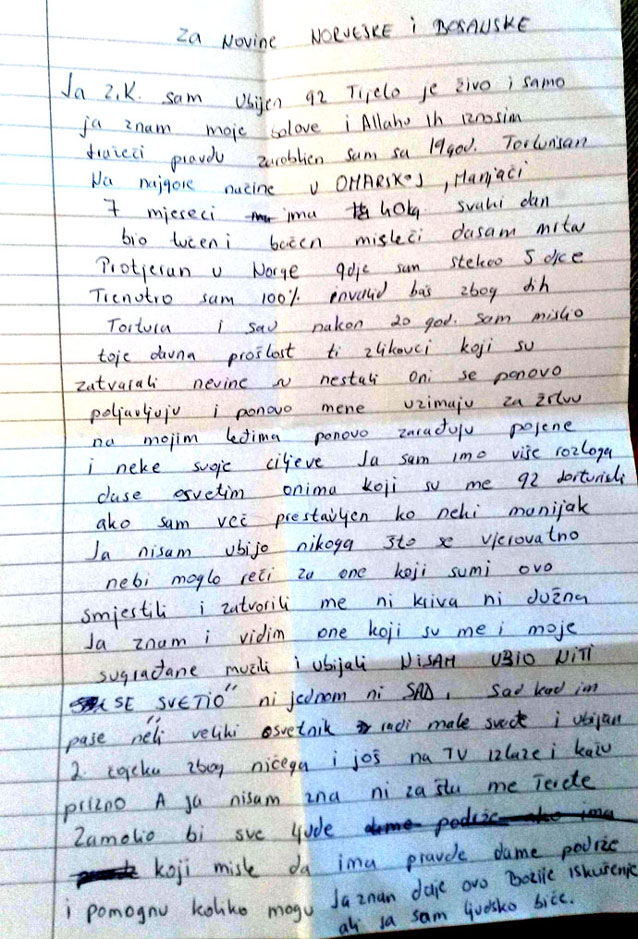 Za Novine NORVEŠKE i BOSANSKE
Ja Z.K. sam ubijen 92 Tijelo je živo i samo
ja znam moje bolove i Allahu ih iznosim
tražeči pravdu zarobljen sam sa 19 god. Torturisan
Na najgore načine u OMARSKOJ, Manjači
7 mjeseci ima 40kg. svaki dan
bio tučen i bačen misleči dasam mrtav
Protjeran u Norge gdje sam stekao 5 djece
Trenutno sam 100% invalid baš zbog tih
Tortura i sav nakon 20 god. sam mislio
toje davna prošlost ti zlikovci koji su
zatvarali nevine su nestali oni se ponovo
poljavljuju i ponovo mene uzimaju za žrtvu
na mojim leđima ponovo zarađuju pojene
i neke svoje ciljeve Ja sam imo više rozloga
dase osvetim onima koji su me 92 torturisali
ako sam več prestavljen ko neki manijak
Ja nisam ubijo nikoga što se vjerovatno
nebi moglo reči za one koji sumi ovo
smjestili i zatvorili me ni kriva ni dužna
Ja znam i vidim one koji su me i moje
sugrađane mučili i ubijali NISAM UBIO NITI
SE SVETIO" ni jednom ni SAD, sad kad im
paše neki veliki osvetnik radi male svađe i ubijan
2. čojeka zbog ničega i još na TV izlaze i kažu
prizno A ja nisam zna ni za štu me Terete
Zamolio bi sve ljude
koji misle da ima pravde dame podrže
i pomognu koliko mogu Ja znan daje ovo Božije iskušenje
ali ja sam ljudsko biče.